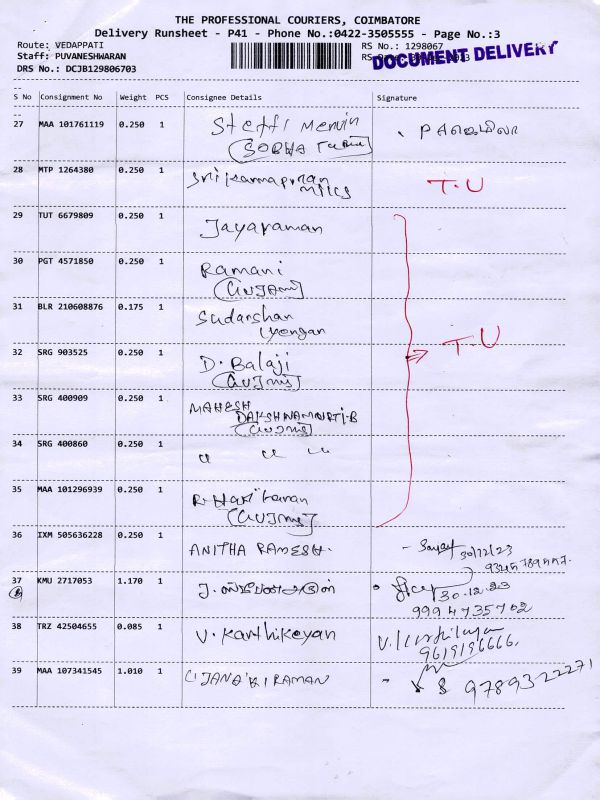 THE PROFESSIONAL COURIERS, COIMBATORE
Delivery Runsheet - P41 - Phone No.:0422-3505555 - Page No.:3
Route: VEDAPPATI
RS No.: 1298067
Staff: PUVANESHWARAN
DOCUMENT DELIVERY
DRS No.: DCJB129806703
S No Consignment No Weight PCS Consignee Details Signature
27 MAA 101761119 0.250 1 Steffi Mervin
(SOBHA
28 MTP 1264380 0.250 1 T.U
29 TUT 6679809 0.250 1 Jayaraman
30 PGT 4571850 0.250 1 Ramani
31 BLR 210608876 0.175 1 Sudarshan
Iyengar
T.U
32 SRG 903525 0.250 1 D. Balaji
33 SRG 400909 0.250 1 MAHESH
34 SRG 400860 0.250 1 " " "
35 MAA 101296939 0.250 1 R. Hariharan
36 IXM 505636228 0.250 1 ANITHA RAMESH. 30/12/23
37 KMU 2717053 1.170 1 J. 30.12.23
9994735702
38 TRZ 42504655 0.085 1 V. Karthikeyan V. Karthikeyan
9619196666.
39 MAA 107341545 1.010 1 JANAKIRAMAN 9789322271